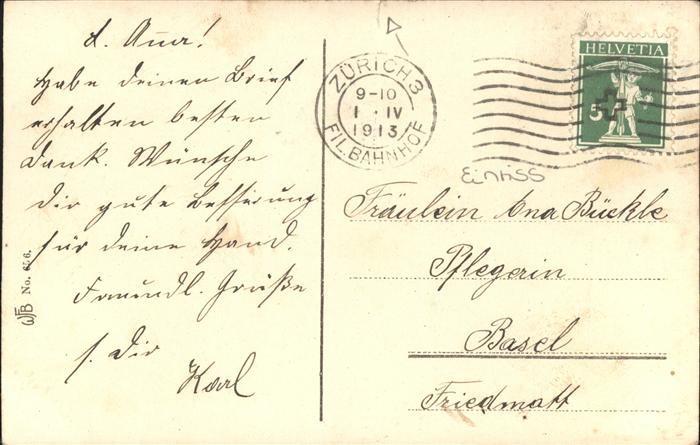 L. Anna!
Habe deinen Brief
erhalten besten
Dank. Wünsche
Dir gute Besserung
für deine Hand.
Freundl. Grüße
s. Dir
Karl
WFB No. 656.
ZÜRICH 3
9-10
1. IV
1913
FIL. BAHNHOF
HELVETIA
5
Fräulein Ana Bückle
Pflegerin
Basel
Friedmatt